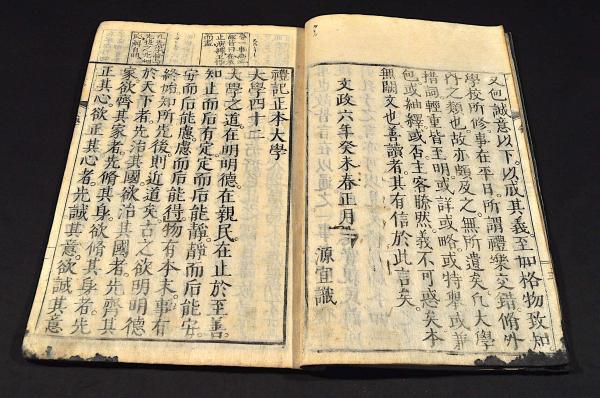 又向誠意以下。以成其義至如格物致知
學校所修事在平日所謂禮樂交錯脩外
內之類也故亦及之無所遺矣凡大學
措詞輕重皆至明或詳或略或特舉或兼
包或紬繹或否主客然義不可惑矣本
無闕文也善讀者其有信於此言矣
文政六年癸未春正月
源宜識
禮記正本大學
大學四十二
大學之道。在明明德。在親民在止於至善。
知止而后有定定而后能靜。靜而后能安
安而后能慮慮而后能得。物有本末。事有
終始知所先後則近道矣。古之欲明明德
於天下者。先治其國。欲治其國者。先齊其
家欲齊其家者。先脩其身。欲脩其身者。先
正其心。欲正其心者。先誠其意。欲誠其意